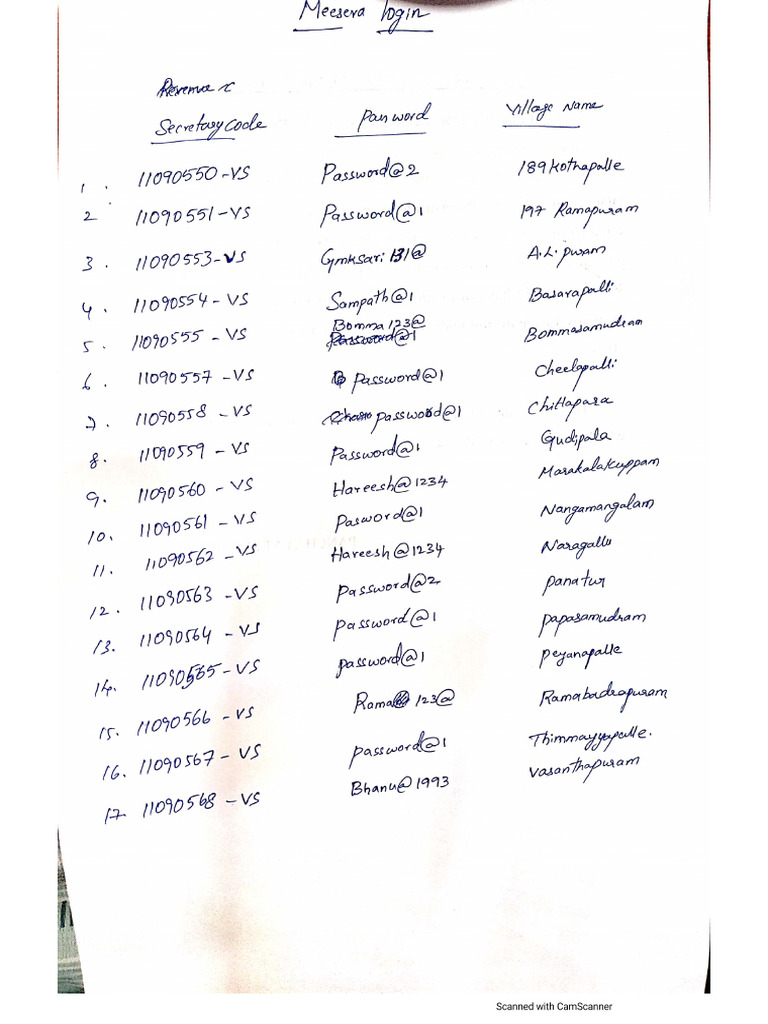 Meeseva login
Revenue
Secretary code Password Village Name
1. 11090550-VS Password@2 189 Kothapalle
2 11090551-VS Password@1 197 Ramapuram
3. 11090553-VS Gmksari 131@ A.L. puram
4. 11090554-VS Sampath@1 Basarapalli
Bomma123@
5. 11090555-VS Password@1 Bommasamudram
6. 11090557-VS Password@1 Cheelapalli
7. 11090558-VS password@1 Chittapara
8. 11090559-VS Password@1 Gudipala
9. 11090560-VS Hareesh@1234 Marakalakuppam
10. 11090561-VS Pasword@1 Nangamangalam
11. 11090562-VS Hareesh@1234 Naragallu
12. 11090563-VS Password@2 Panatur
13. 11090564-VS Password@1 Papasamudram
14. 11090565-VS password@1 Peyanapalle
15. 11090566-VS Rama 123@ Ramabadrapuram
16. 11090567-VS password@1 Thimmayyapalle.
17. 11090568-VS Bhanu@1993 Vasanthapuram
Scanned with CamScanner